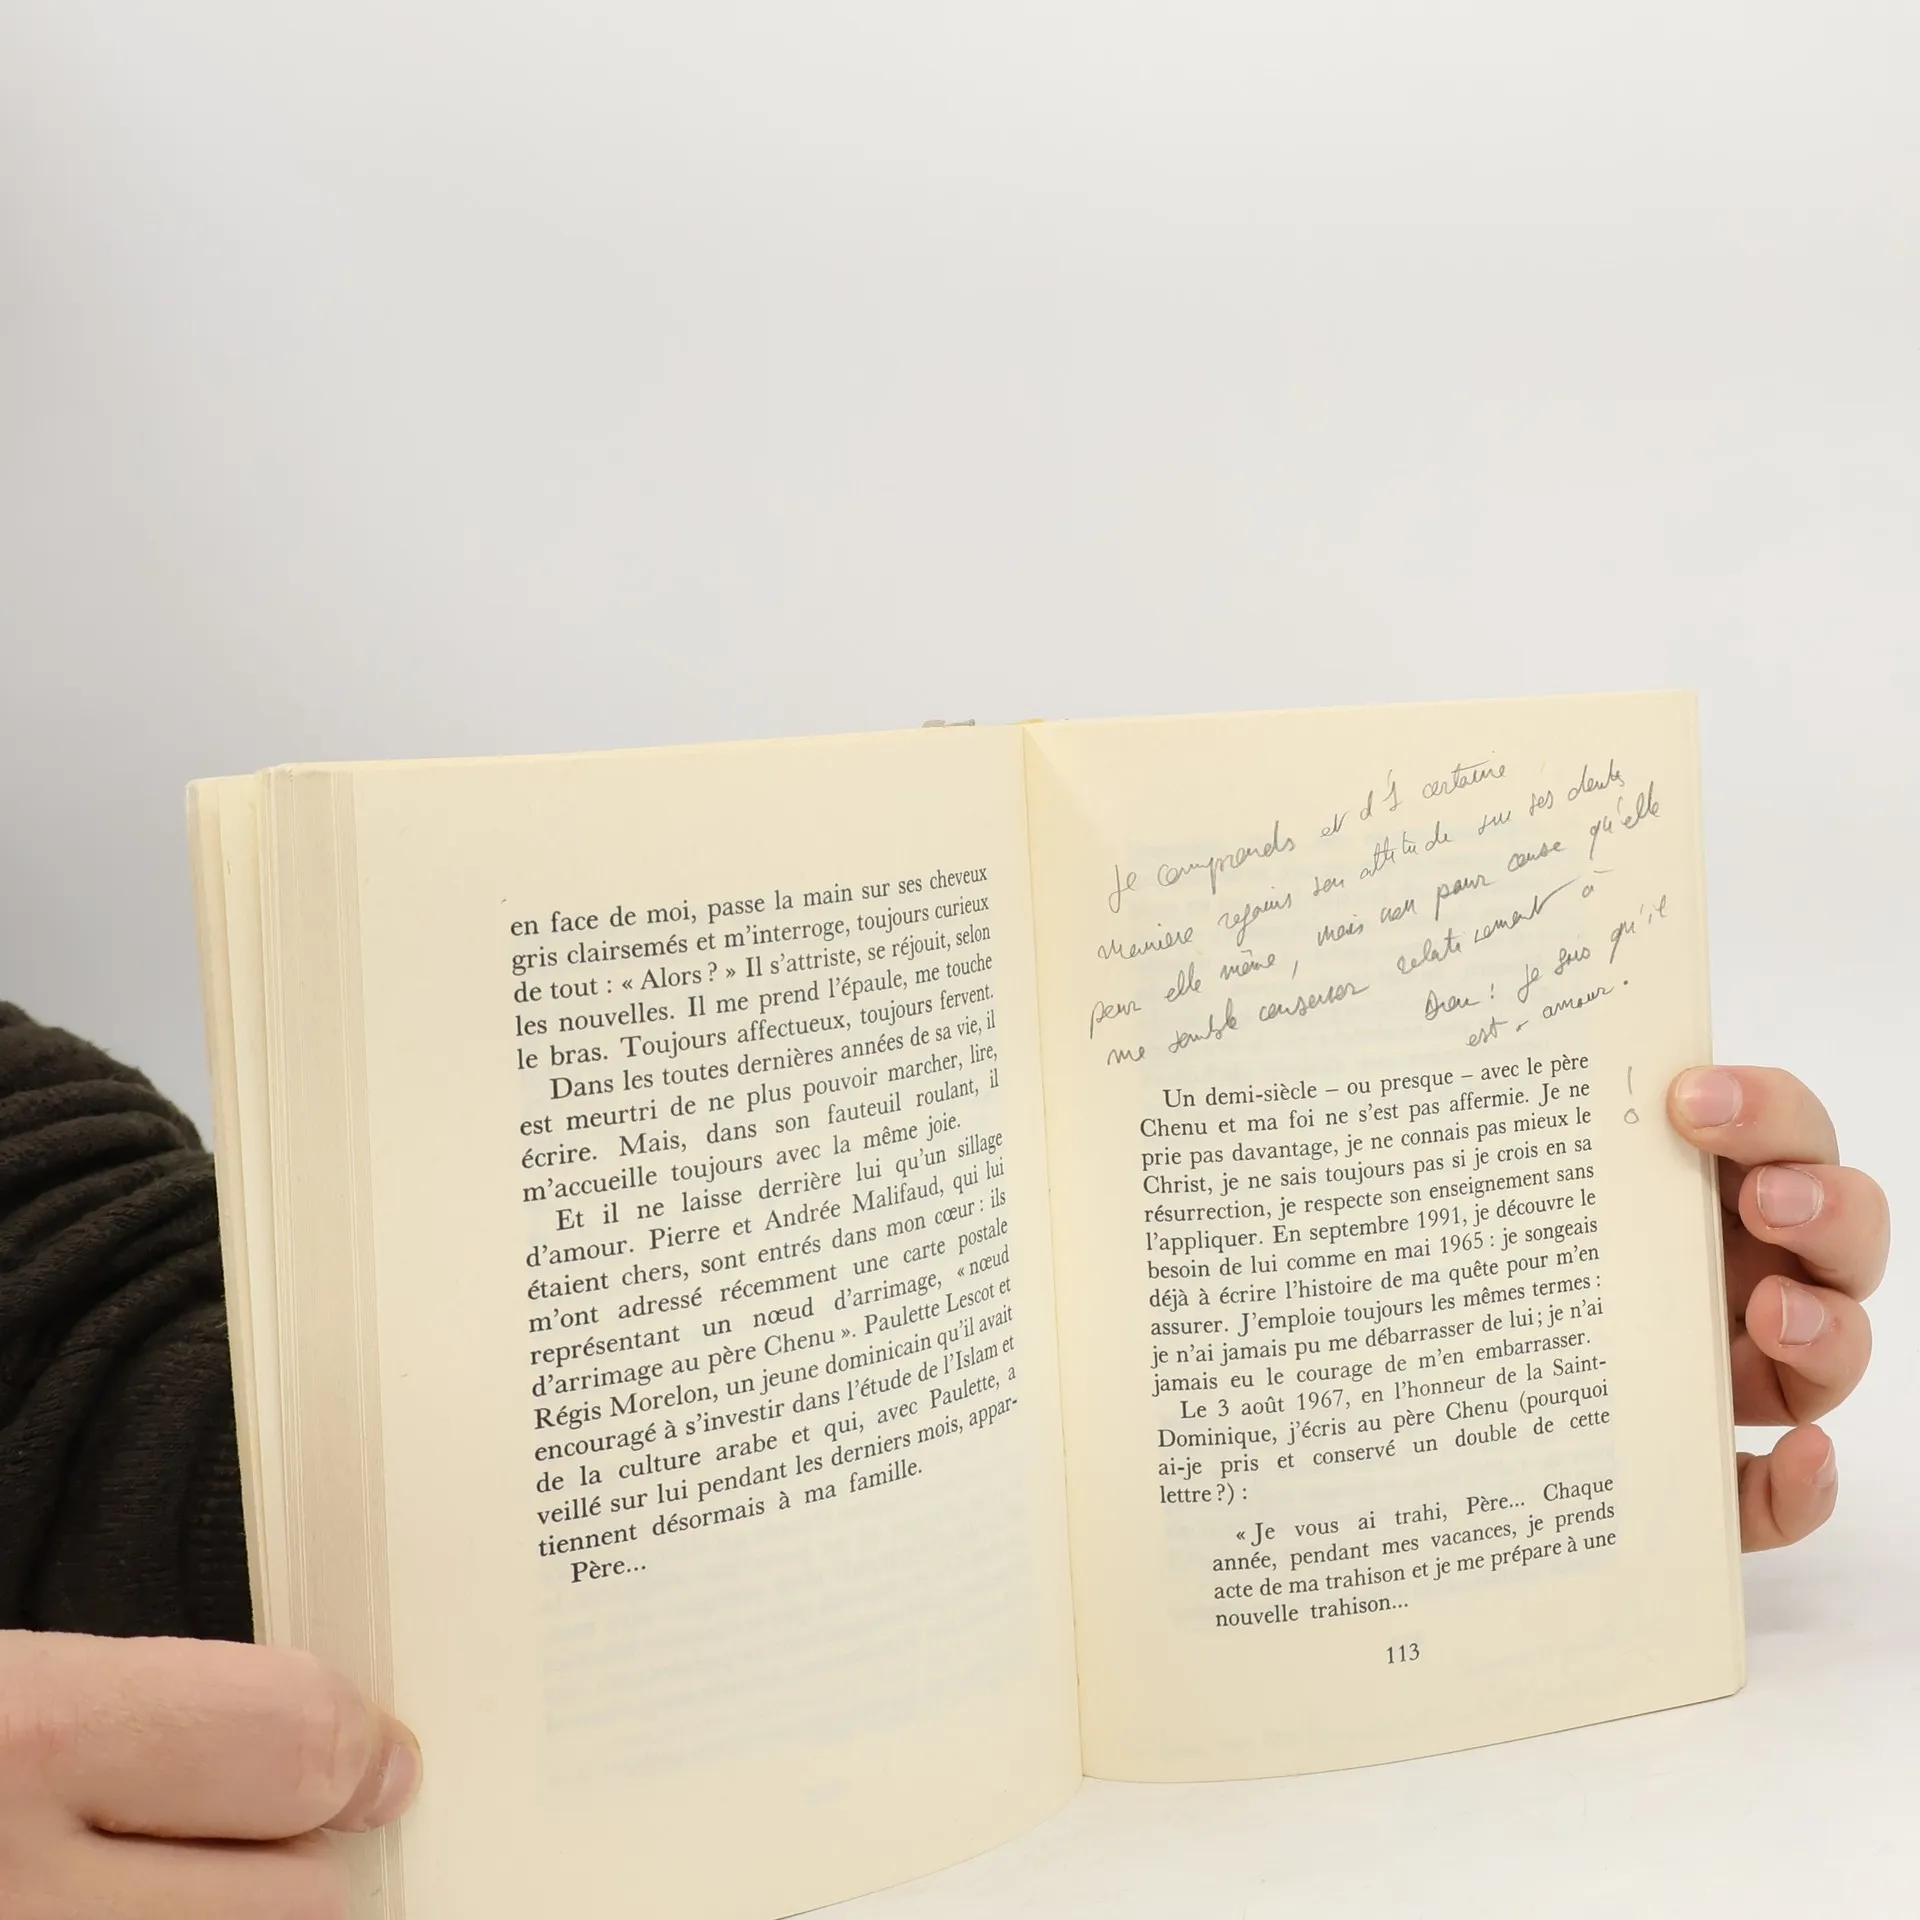 en face de moi, passe la main sur ses cheveux
gris clairsemés et m'interroge, toujours curieux
de tout : « Alors ? » Il s'attriste, se réjouit, selon
les nouvelles. Il me prend l'épaule, me touche
le bras. Toujours affectueux, toujours fervent.
Dans les toutes dernières années de sa vie, il
est meurtri de ne plus pouvoir marcher, lire,
écrire. Mais, dans son fauteuil roulant, il
m'accueille toujours avec la même joie.
Et il ne laisse derrière lui qu'un sillage
d'amour. Pierre et Andrée Malifaud, qui lui
étaient chers, sont entrés dans mon cœur : ils
m'ont adressé récemment une carte postale
représentant un nœud d'arrimage, « nœud
d'arrimage au père Chenu ». Paulette Lescot et
Régis Morelon, un jeune dominicain qu'il avait
encouragé à s'investir dans l'étude de l'Islam et
de la culture arabe et qui, avec Paulette, a
veillé sur lui pendant les derniers mois, appar-
tiennent désormais à ma famille.
Père...
Je comprends et d'1 certaine
manière rejoins son attitude sur ses
pour elle même, mais non pour cause qu'elle
me semble conserver relativement à
Dieu : je sais qu'il
est amour.
Un demi-siècle – ou presque – avec le père
Chenu et ma foi ne s'est pas affermie. Je ne
prie pas davantage, je ne connais pas mieux le
Christ, je ne sais toujours pas si je crois en sa
résurrection, je respecte son enseignement sans
l'appliquer. En septembre 1991, je découvre le
besoin de lui comme en mai 1965 : je songeais
déjà à écrire l'histoire de ma quête pour m'en
assurer. J'emploie toujours les mêmes termes :
je n'ai jamais pu me débarrasser de lui ; je n'ai
jamais eu le courage de m'en embarrasser.
Le 3 août 1967, en l'honneur de la Saint-
Dominique, j'écris au père Chenu (pourquoi
ai-je pris et conservé un double de cette
lettre ?) :
« Je vous ai trahi, Père... Chaque
année, pendant mes vacances, je prends
acte de ma trahison et je me prépare à une
nouvelle trahison...
113